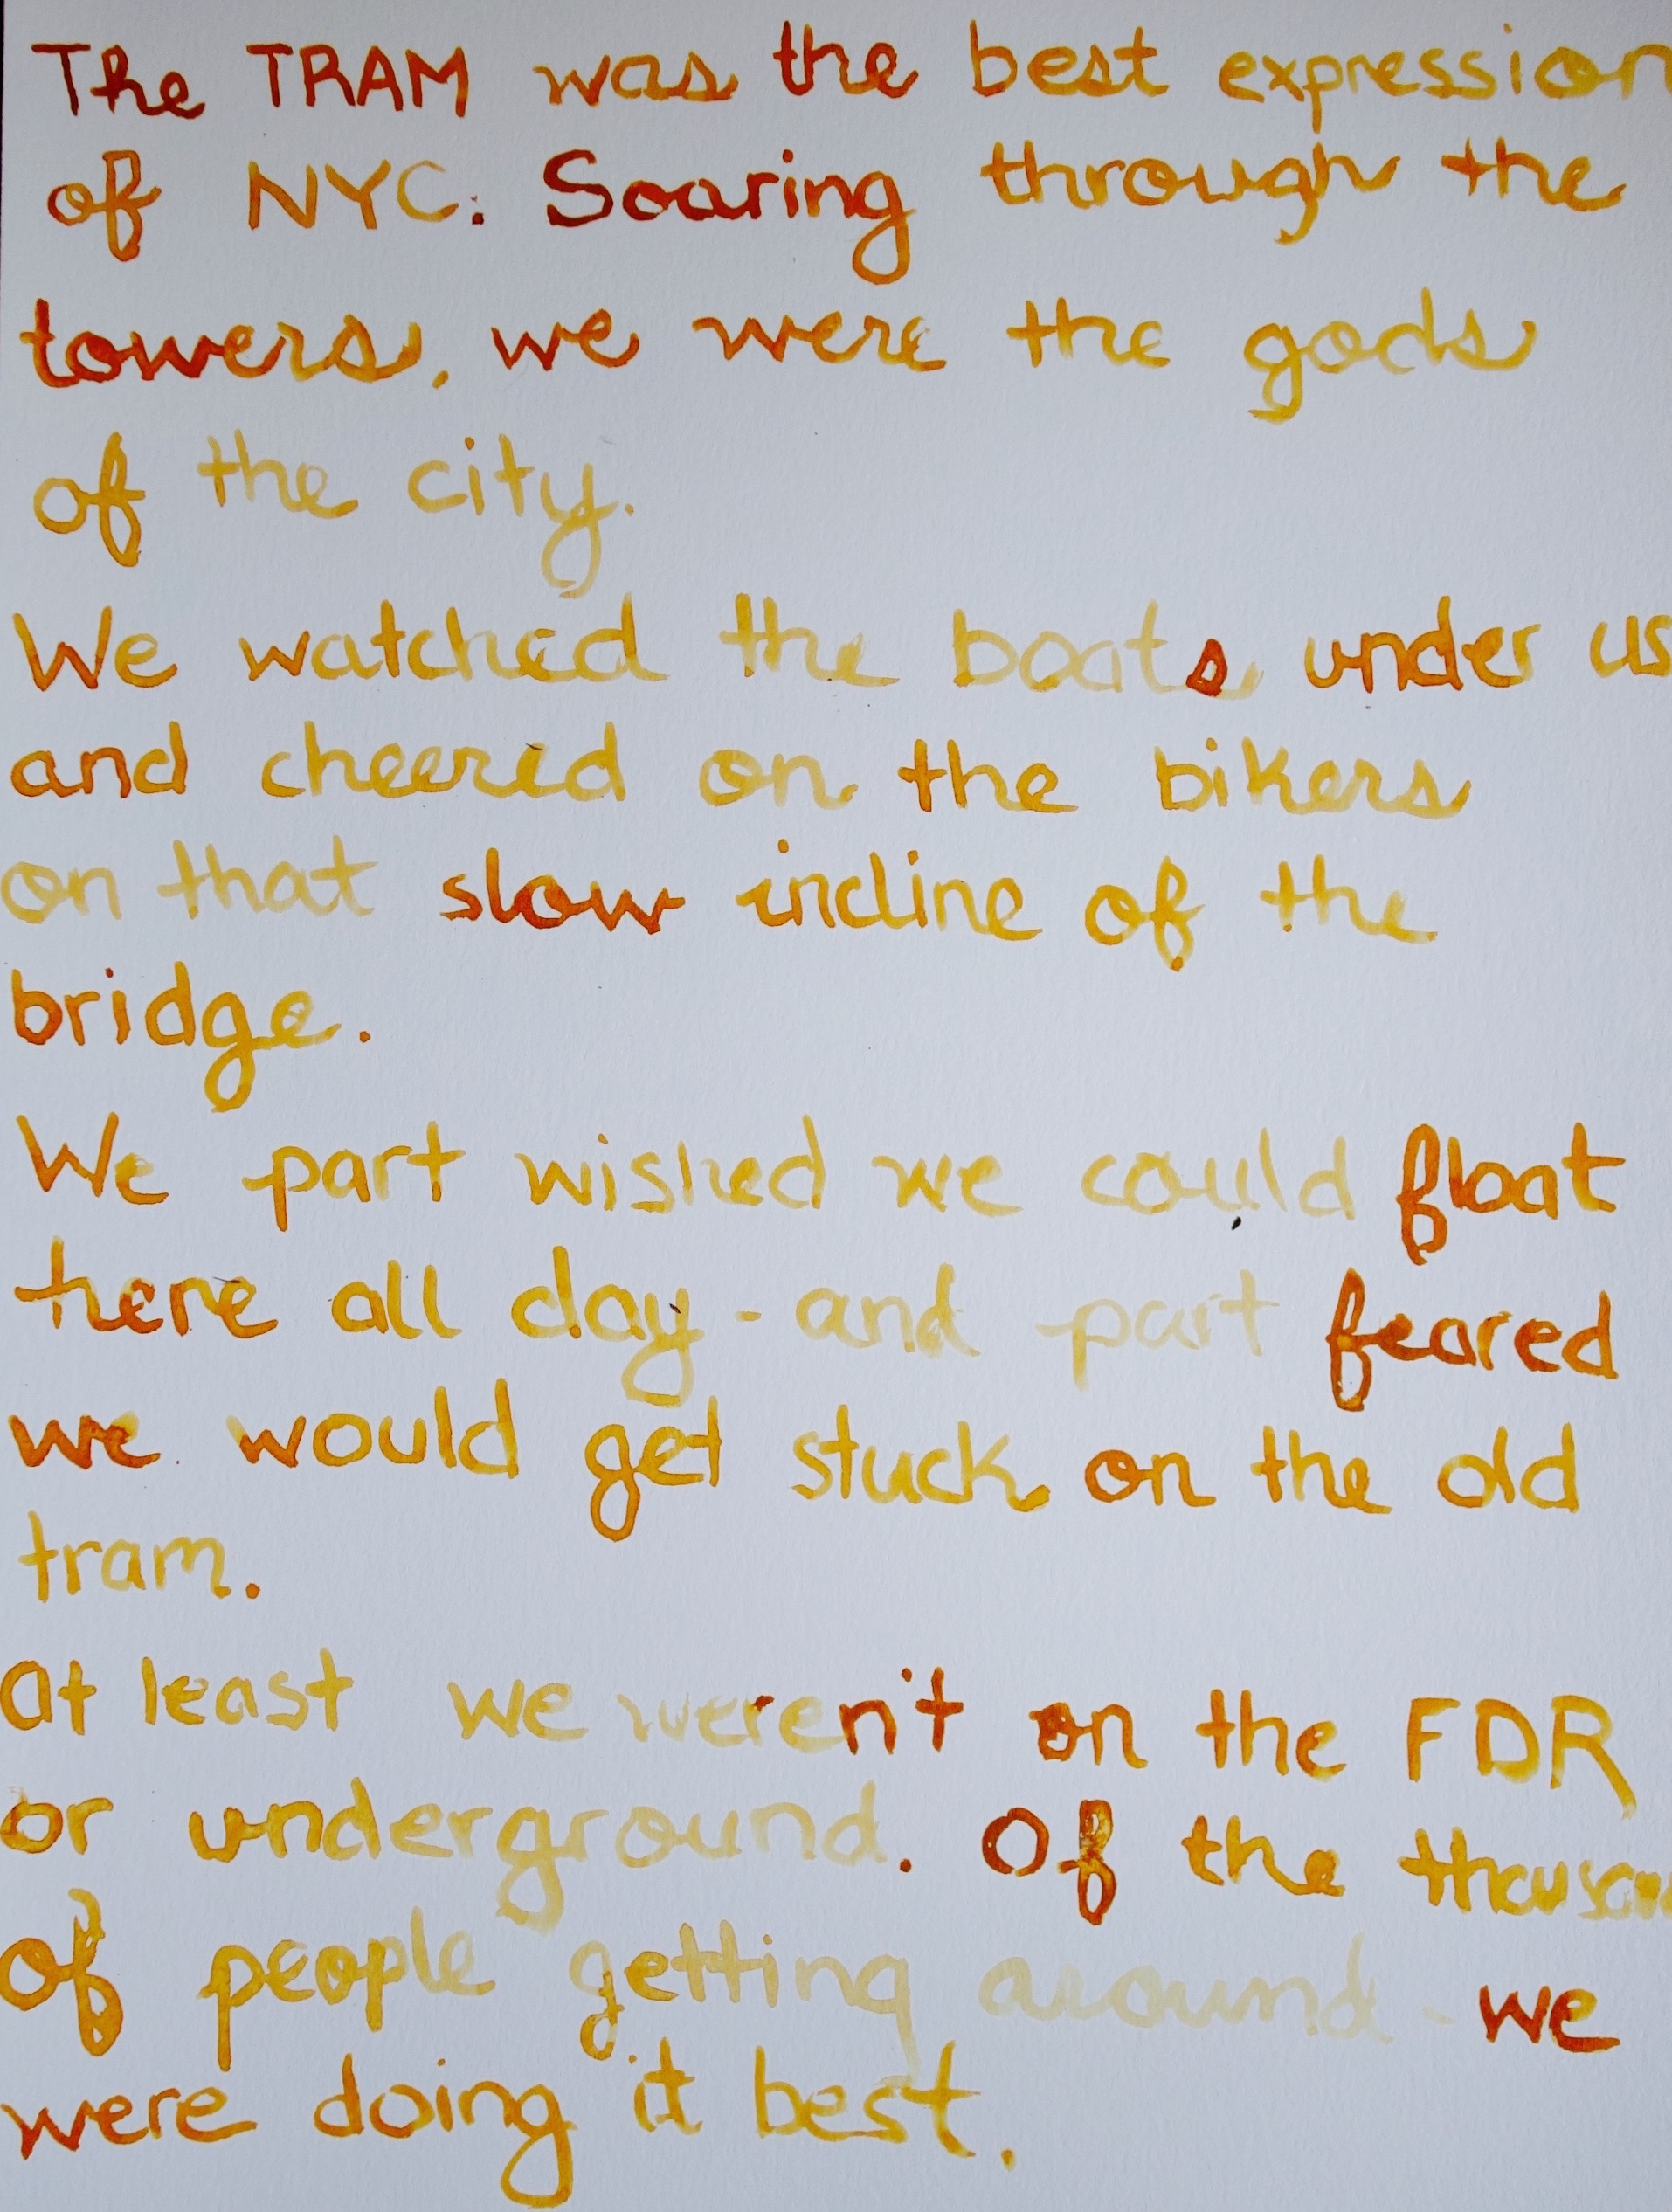 The TRAM was the best expression
of NYC. Soaring through the
towers, we were the gods
of the city.
We watched the boats under us
and cheered on the bikers
on that slow incline of the
bridge.
We part wished we could float
here all day - and part feared
we would get stuck on the old
tram.
At least we weren't on the FDR
or underground. Of the thousan
of people getting around - we
were doing it best.